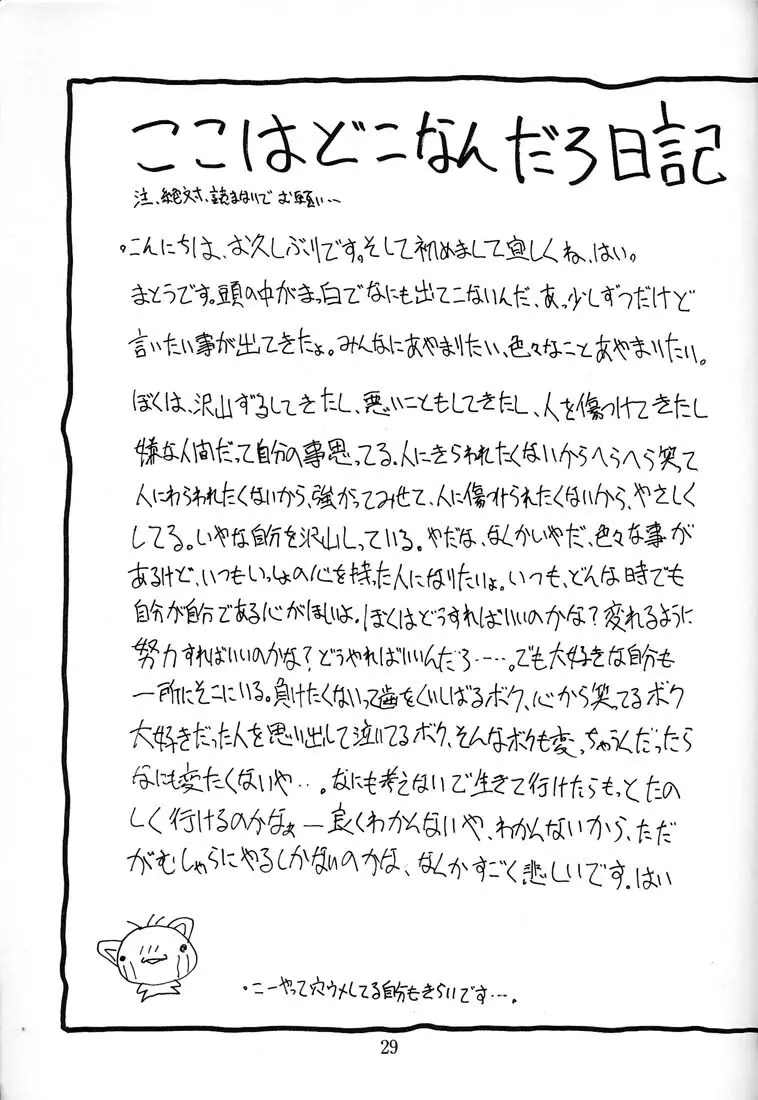 ここはどこなんだろ日記
注、絶対、読まないでお願い…
・こんにちは、お久しぶりです。そして初めまして宜しくね、はい。
まとうです。頭の中がまっ白でなにも出てこないんだ、あっ少しずつだけど
言いたい事が出てきたょ。みんなにあやまりたい、色々なことあやまりたい。
ぼくは、沢山ずるしてきたし、悪いこともしてきたし、人を傷つけてきたし
嫌な人間だって自分の事思ってる。人にきらわれたくないからへらへら笑て
人にわらわれたくないから、強がってみせて、人に傷つけられたくないから、やさしく
してる。いやな自分を沢山しっている。やだな、なんかいやだ、色々な事が
あるけど、いつもいっしょの心を持った人になりたいょ。いつも、どんな時でも
自分が自分である心がほしいよ。ぼくはどうすればいいのかな？変れるように
努力すればいいのかな？どうやればいいんだろ……。でも大好きな自分も
一所にそこにいる。負けたくないって歯をくいしばるボク、心から笑ってるボク
大好きだった人を思い出して泣いてるボク、そんなボクも変っちゃうんだったら
なにも変たくないや…。なにも考えないで生きて行けたらもっとたの
しく行けるのかなぁー良くわかんないや、わかんないから、ただ
がむしゃらにやるしかないのかな、なんかすごく悲しいです。はい
・こーやって穴ウメしてる自分もきらいです…。
29